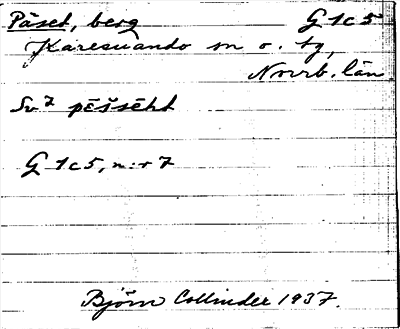 Påset, berg G 1c5
Karesuando sn o. tg,
Norrb. län
Sv7 pēšsēht
G 1c5, n:r 7
Björn Collinder 1937.